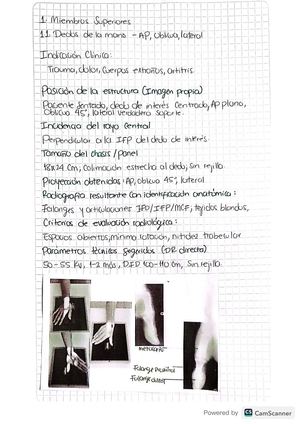 1. Miembros Superiores
1.1 Dedos de la mano - AP, Oblicua, lateral
Indicación Clínica:
Trauma, dolor, Cuerpos extraños, artritis
Posición de la estructura (Imagen propia)
Paciente Sentado, dedo de interés Centrado, AP plano,
Oblicuo 45°, lateral verdadero Soporte.
Incidencia del rayo Central
Perpendicular a la IFP del dedo de interés.
Tamaño del chasis / panel
18x24 Cm, Colimación estrecha al dedo, Sin rejilla.
Proyección obtenidas: AP, oblicuo 45°, lateral
Radiografía resultante con identificación anatómica:
Falanges y articulaciones IFD/IFP/MCF, tejidos blandos,
Criterios de evaluación radiológica:
Espacios abiertos, mínima rotación, nitidez trabecular
Parámetros técnicos sugeridos (DR directa)
50-55 KV, 1-2 mAs, DFD 100-110 Cm, Sin rejilla.
metacarpo
Falange proximal
Falange distal
Powered by CS CamScanner